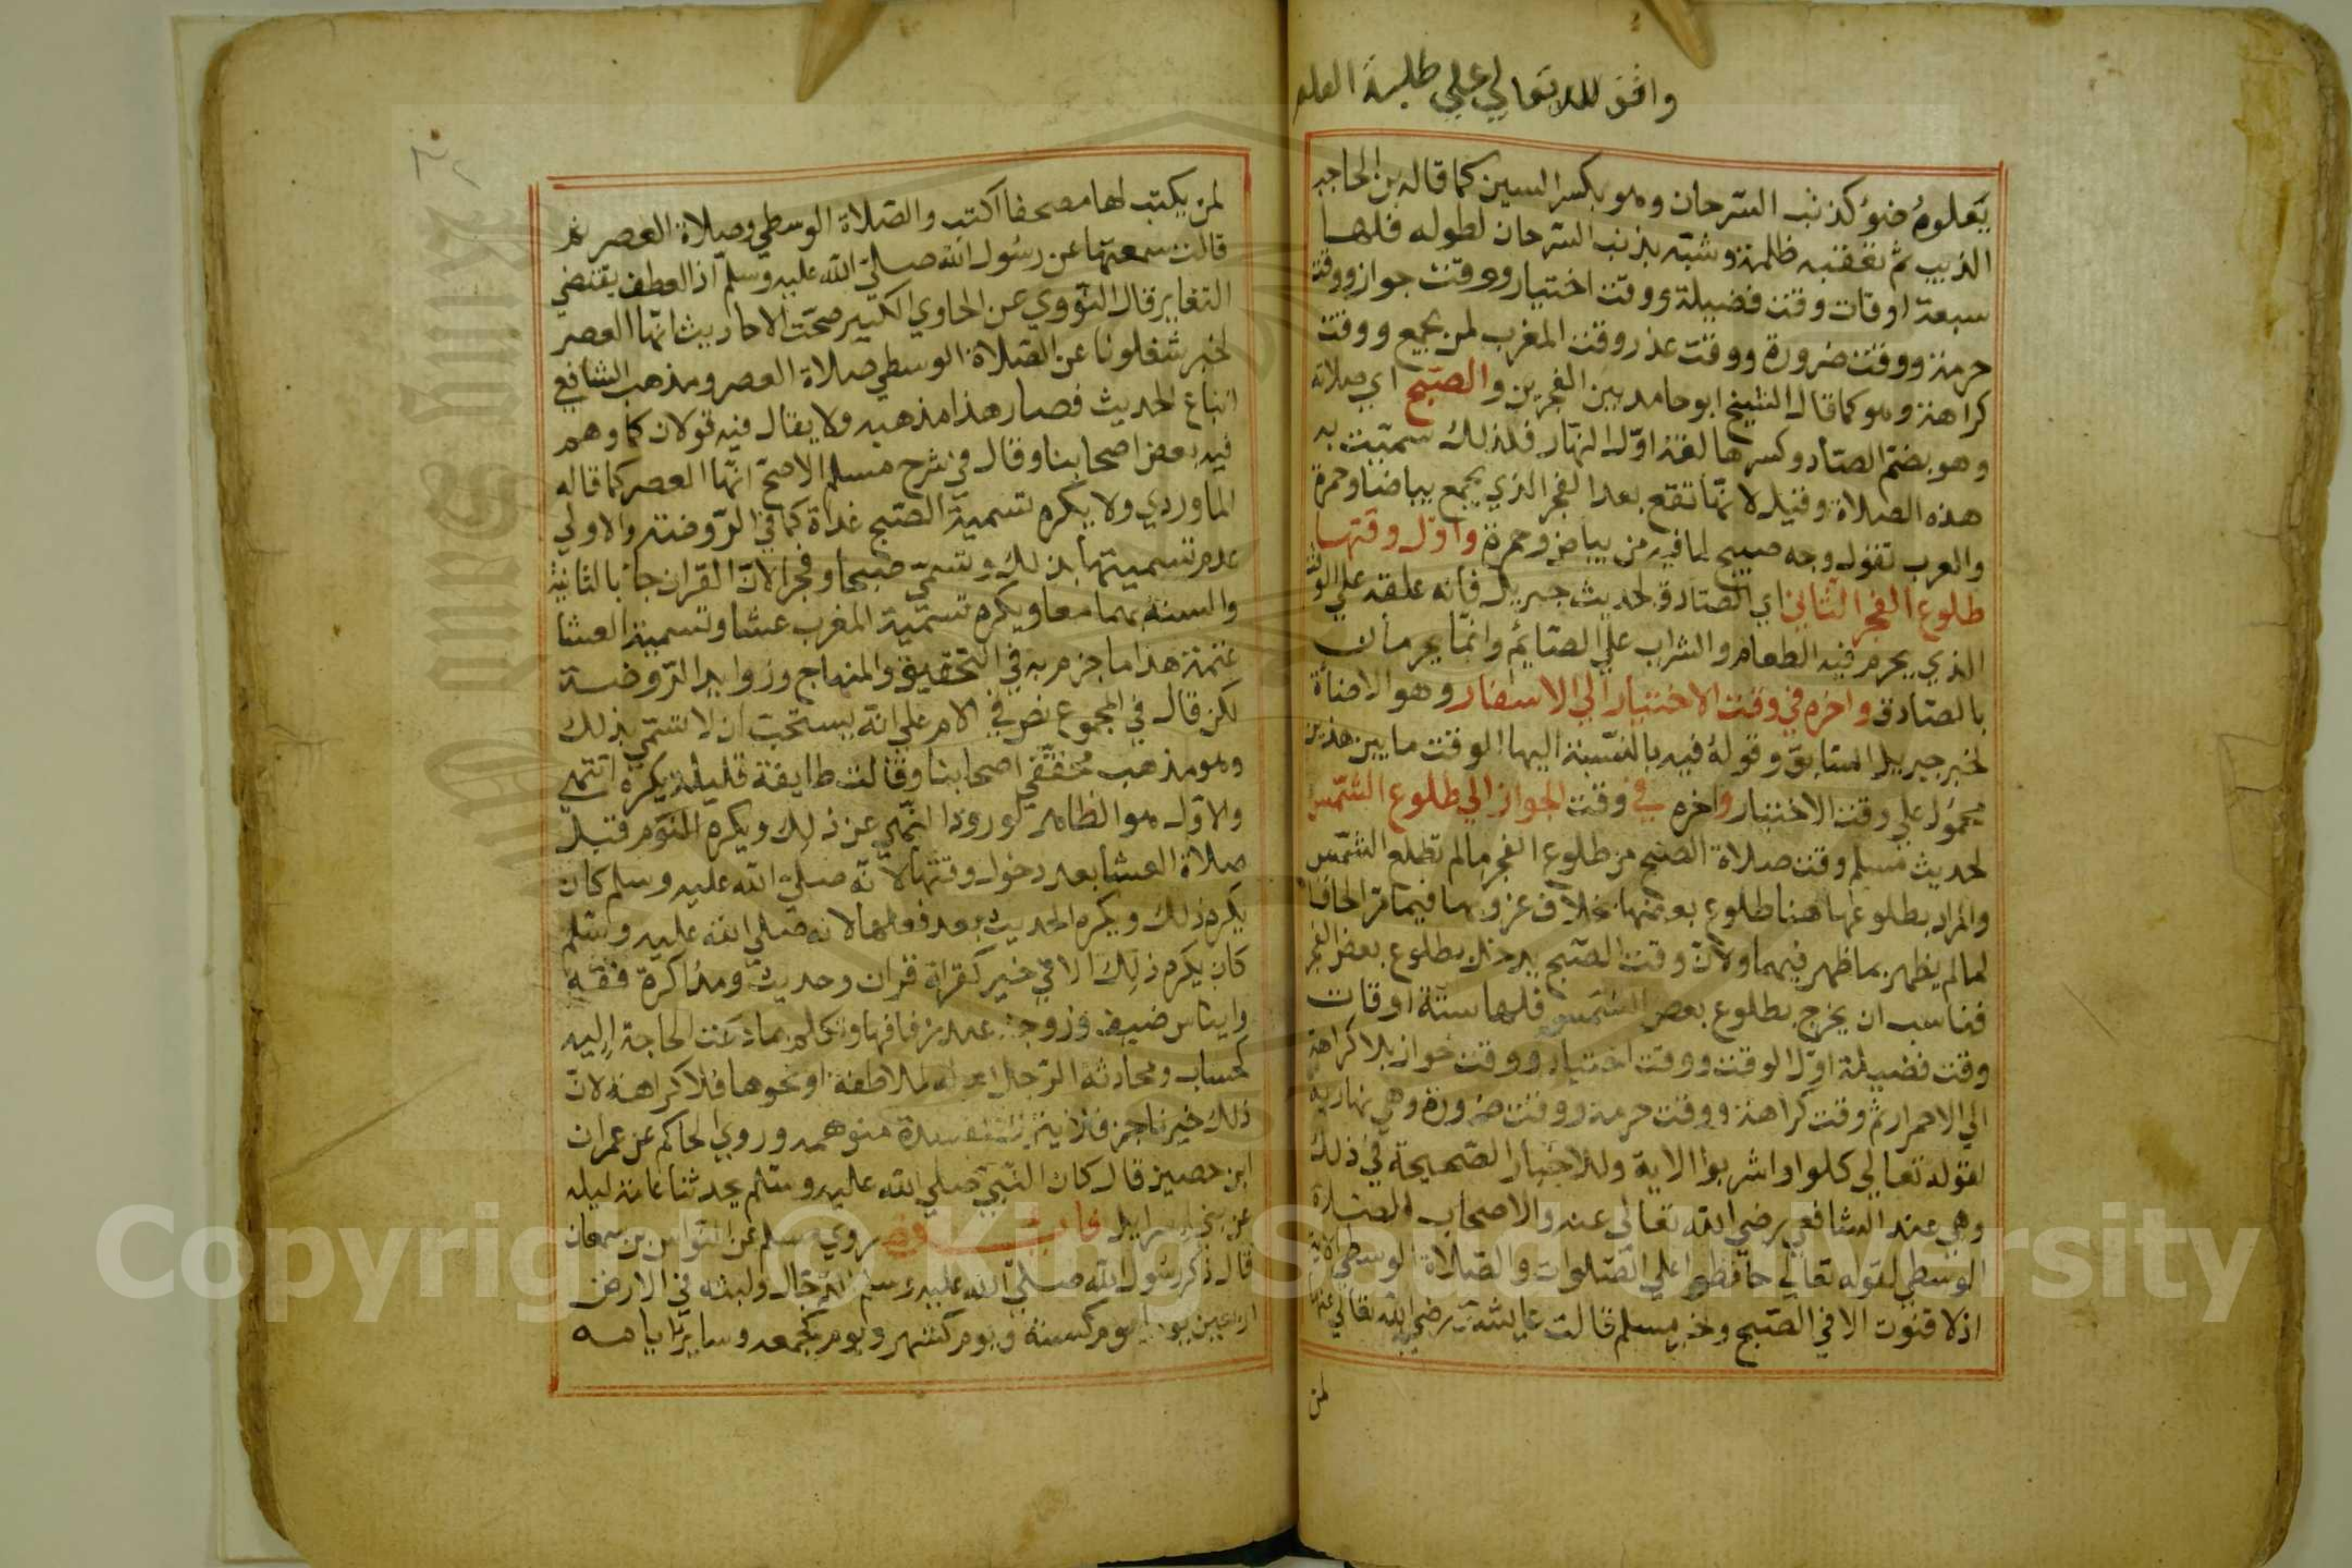 واقف لله تعالي علي طلبة العلم
يعلوه ضوء كذنب السرحان وهو بكسر السين كما قاله بن الحاجب
الذييب ثم تعقبه ظلمة وشبه بذنب السرحان لطوله فلها
سبعة اوقات وقت فضيلة ووقت اختيار ووقت جواز ووقت
حرمة ووقت ضرورة ووقت عذر وقت المغرب لمن يجمع ووقت
كراهة وهو كما قال الشيخ ابو حامد بين الفجرين والصبح اي صلاته
وهو بضم الصاد وكسرها لغة اول النهار فلذلك سميت به
هذه الصلاة وقيل لانها تقع بعد الفجر الذي يجمع بياضا وحمرة
والعرب تقول وجه صبيح لما فيه من بياض وحمرة واول وقتها
طلوع الفجر الثاني اي الصادق لحديث جبريل فانه علقه علي الوقت
الذي يحرم فيه الطعام والشراب علي الصايم وانما يحرمان
بالصادق واخره في وقت الاختيار الي الاسفار وهو الاضاة
لخبر جبريل السابق وقوله فيه بالنسبة اليها الوقت ما بين هذين
محمول علي وقت الاختيار واخره في وقت الجواز الي طلوع الشمس
لحديث مسلم وقت صلاة الصبح من طلوع الفجر ما لم تطلع الشمس
والمراد بطلوعها هنا طلوع بعضها بخلاف غروبها فيما مر الحاقا
لما لم يظهر بما ظهر فيهما ولان وقت الصبح يدخل بطلوع بعض الفجر
فناسب ان يخرج بطلوع بعض الشمس فلها ستة اوقات
وقت فضيلة اول الوقت ووقت اختيار ووقت جواز بلا كراهة
الي الاحمرار ثم وقت كراهة ووقت حرمة ووقت ضرورة وهي نهارية
لقوله تعالي كلوا واشربوا الاية وللاخبار الصحيحة في ذلك
وهي عند الشافعي رضي الله تعالي عنه والاصحاب الصلاة
الوسطي لقوله تعالي حافظوا علي الصلوات والصلاة الوسطي الاية
اذ لا قنوت الا في الصبح وخبر مسلم قالت عايشة رضي الله تعالي عنها
لمن
لمن يكتب لها مصحفا اكتب والصلاة الوسطي وصلاة العصر ثم
قالت سمعتها عن رسول الله صلي الله عليه وسلم اذ العطف يقتضي
التغاير قال النووي عن الحاوي الكبير صحت الاحاديث انها العصر
لخبر شغلونا عن الصلاة الوسطي صلاة العصر ومذهب الشافعي
اتباع الحديث فصار هذا مذهبه ولا يقال فيه قولان كما وهم
فيه بعض اصحابنا وقال في شرح مسلم الاصح انها العصر كما قاله
الماوردي ولا يكره تسمية الصبح غداة كما في الروضة والاولي
عدم تسميتها بذلك وتسمي صبحا وفجرا لان القران جا بالثانية
والسنة بهما معا ويكره تسمية المغرب عشا وتسمية العشا
عتمة هذا ما جزم به في التحقيق والمنهاج وزوايد الروضة
لكن قال في المجموع نص في الام علي انه يستحب ان لا تسمي بذلك
وهو مذهب محققي اصحابنا وقالت طايفة قليلة يكره انتهي
والاول هو الظاهر لورود النهي عن ذلك ويكره النوم قبل
صلاة العشا بعد دخول وقتها لانه صلي الله عليه وسلم كان
يكره ذلك ويكره الحديث بعد فعلها لانه صلي الله عليه وسلم
كان يكره ذلك الا في خير كقراة قران وحديث ومذاكرة فقه
وايناس ضيف وزوجة عند زفافها وتكلم بما دعت الحاجة اليه
كحساب ومحادثة الرجل اهله لملاطفة او نحوها فلا كراهة لان
ذلك خير ناجز فلا يترك لمفسدة متوهمة وروي الحاكم عن عمران
ابن حصين قال كان النبي صلي الله عليه وسلم يحدثنا عامة ليله
عن بني اسرايل فايدة روي مسلم عن النواس بن سمعان
قال ذكر رسول الله صلي الله عليه وسلم الدجال ولبثه في الارض
اربعين يوما يوم كسنة ويوم كشهر ويوم كجمعه وساير ايامه
Copyright © King Saud University